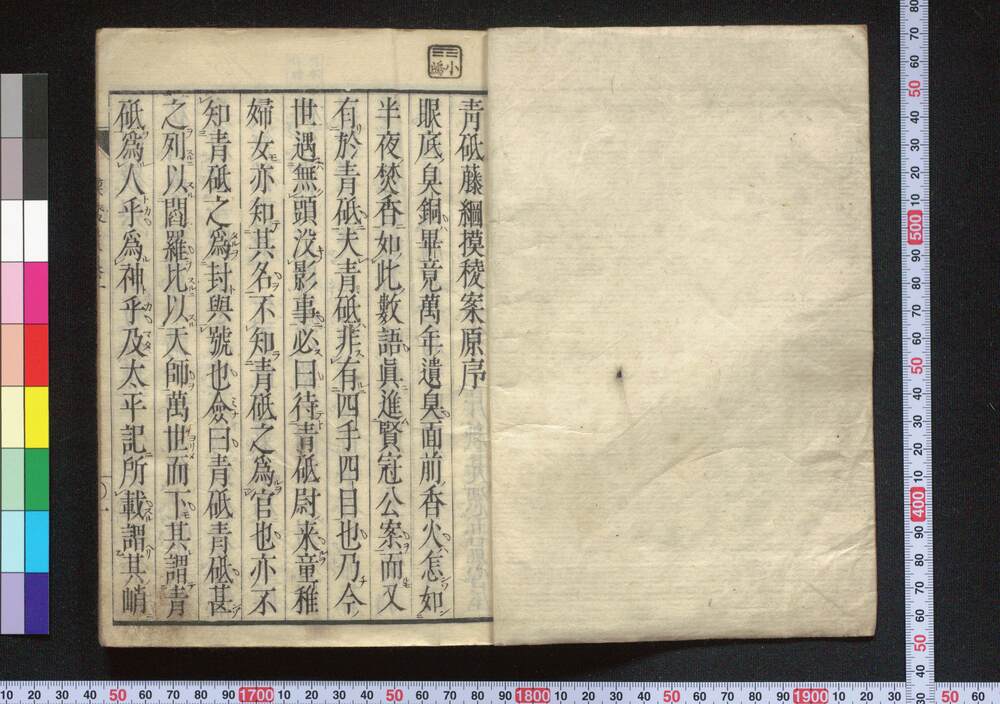 青砥藤綱摸稜案原序
眼底臭銅畢竟萬年遺臭面前香火怎如
半夜焚香如此數語眞進賢冠公案而又
有於青砥夫青砥非有四手四目也乃今
世遇無頭没影事必曰待青砥尉来童稚
婦女亦知其名不知青砥之爲官也亦不
知青砥之爲封與號也僉曰青砥青砥甚
之列以閻羅比以天師萬世而下其謂青
砥爲人乎爲神乎及太平記所載謂其峭
小